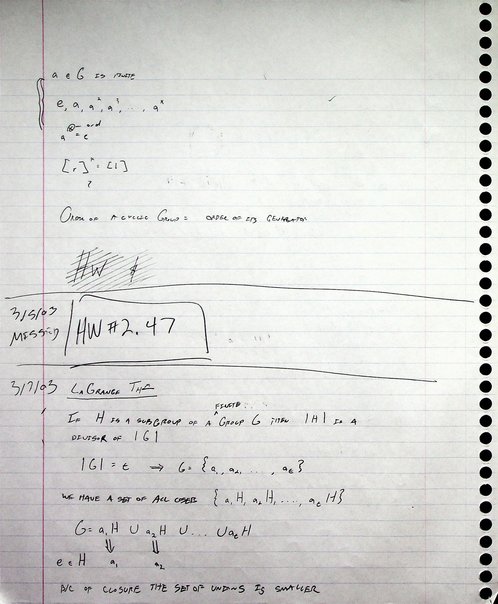 a ∈ G IS FINITE
e, a, a², a³, ..., aˣ
a = e
[r]ˣ = [1]
?
ORDER OF A CYCLIC GROUP = ORDER OF ITS GENERATOR
HW
3/5/03
MISSED
HW # 2.47
3/7/03 LAGRANGE THE
IF H IS A SUBGROUP OF A FINITE GROUP G THEN |H| IS A
DIVISOR OF |G|
|G| = t ⇒ G = {a₁, a₂, ..., aₜ}
WE HAVE A SET OF ALL {a₁H, a₂H, ..., aₜH}
G = a₁H ∪ a₂H ∪ ... ∪ aₜH
e ∈ H a₁ a₂
B/C OF CLOSURE THE SET OF UNIONS IS SMALLER